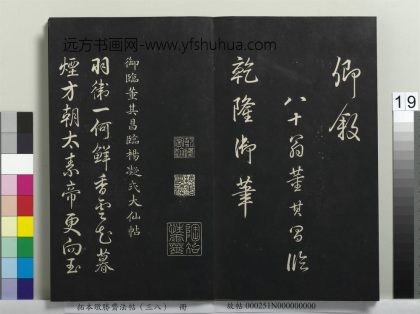 远方书画网-www.yfshuhua.com
卿叙
八十翁董其昌临
乾隆御筆
御臨董其昌臨楊凝式大仙帖
羽衛一何鮮香雲起暮
煙方朝太素帝更向玉
19
拓本敬勝齋法帖(三八) 冊
故帖 000251N000000000